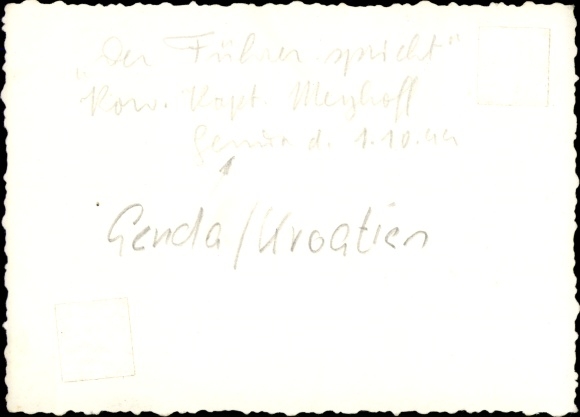 "Der Führer spricht"
Korv. Kapt. Meyhoff
Genua d. 1.10.44
Genda/Kroatien